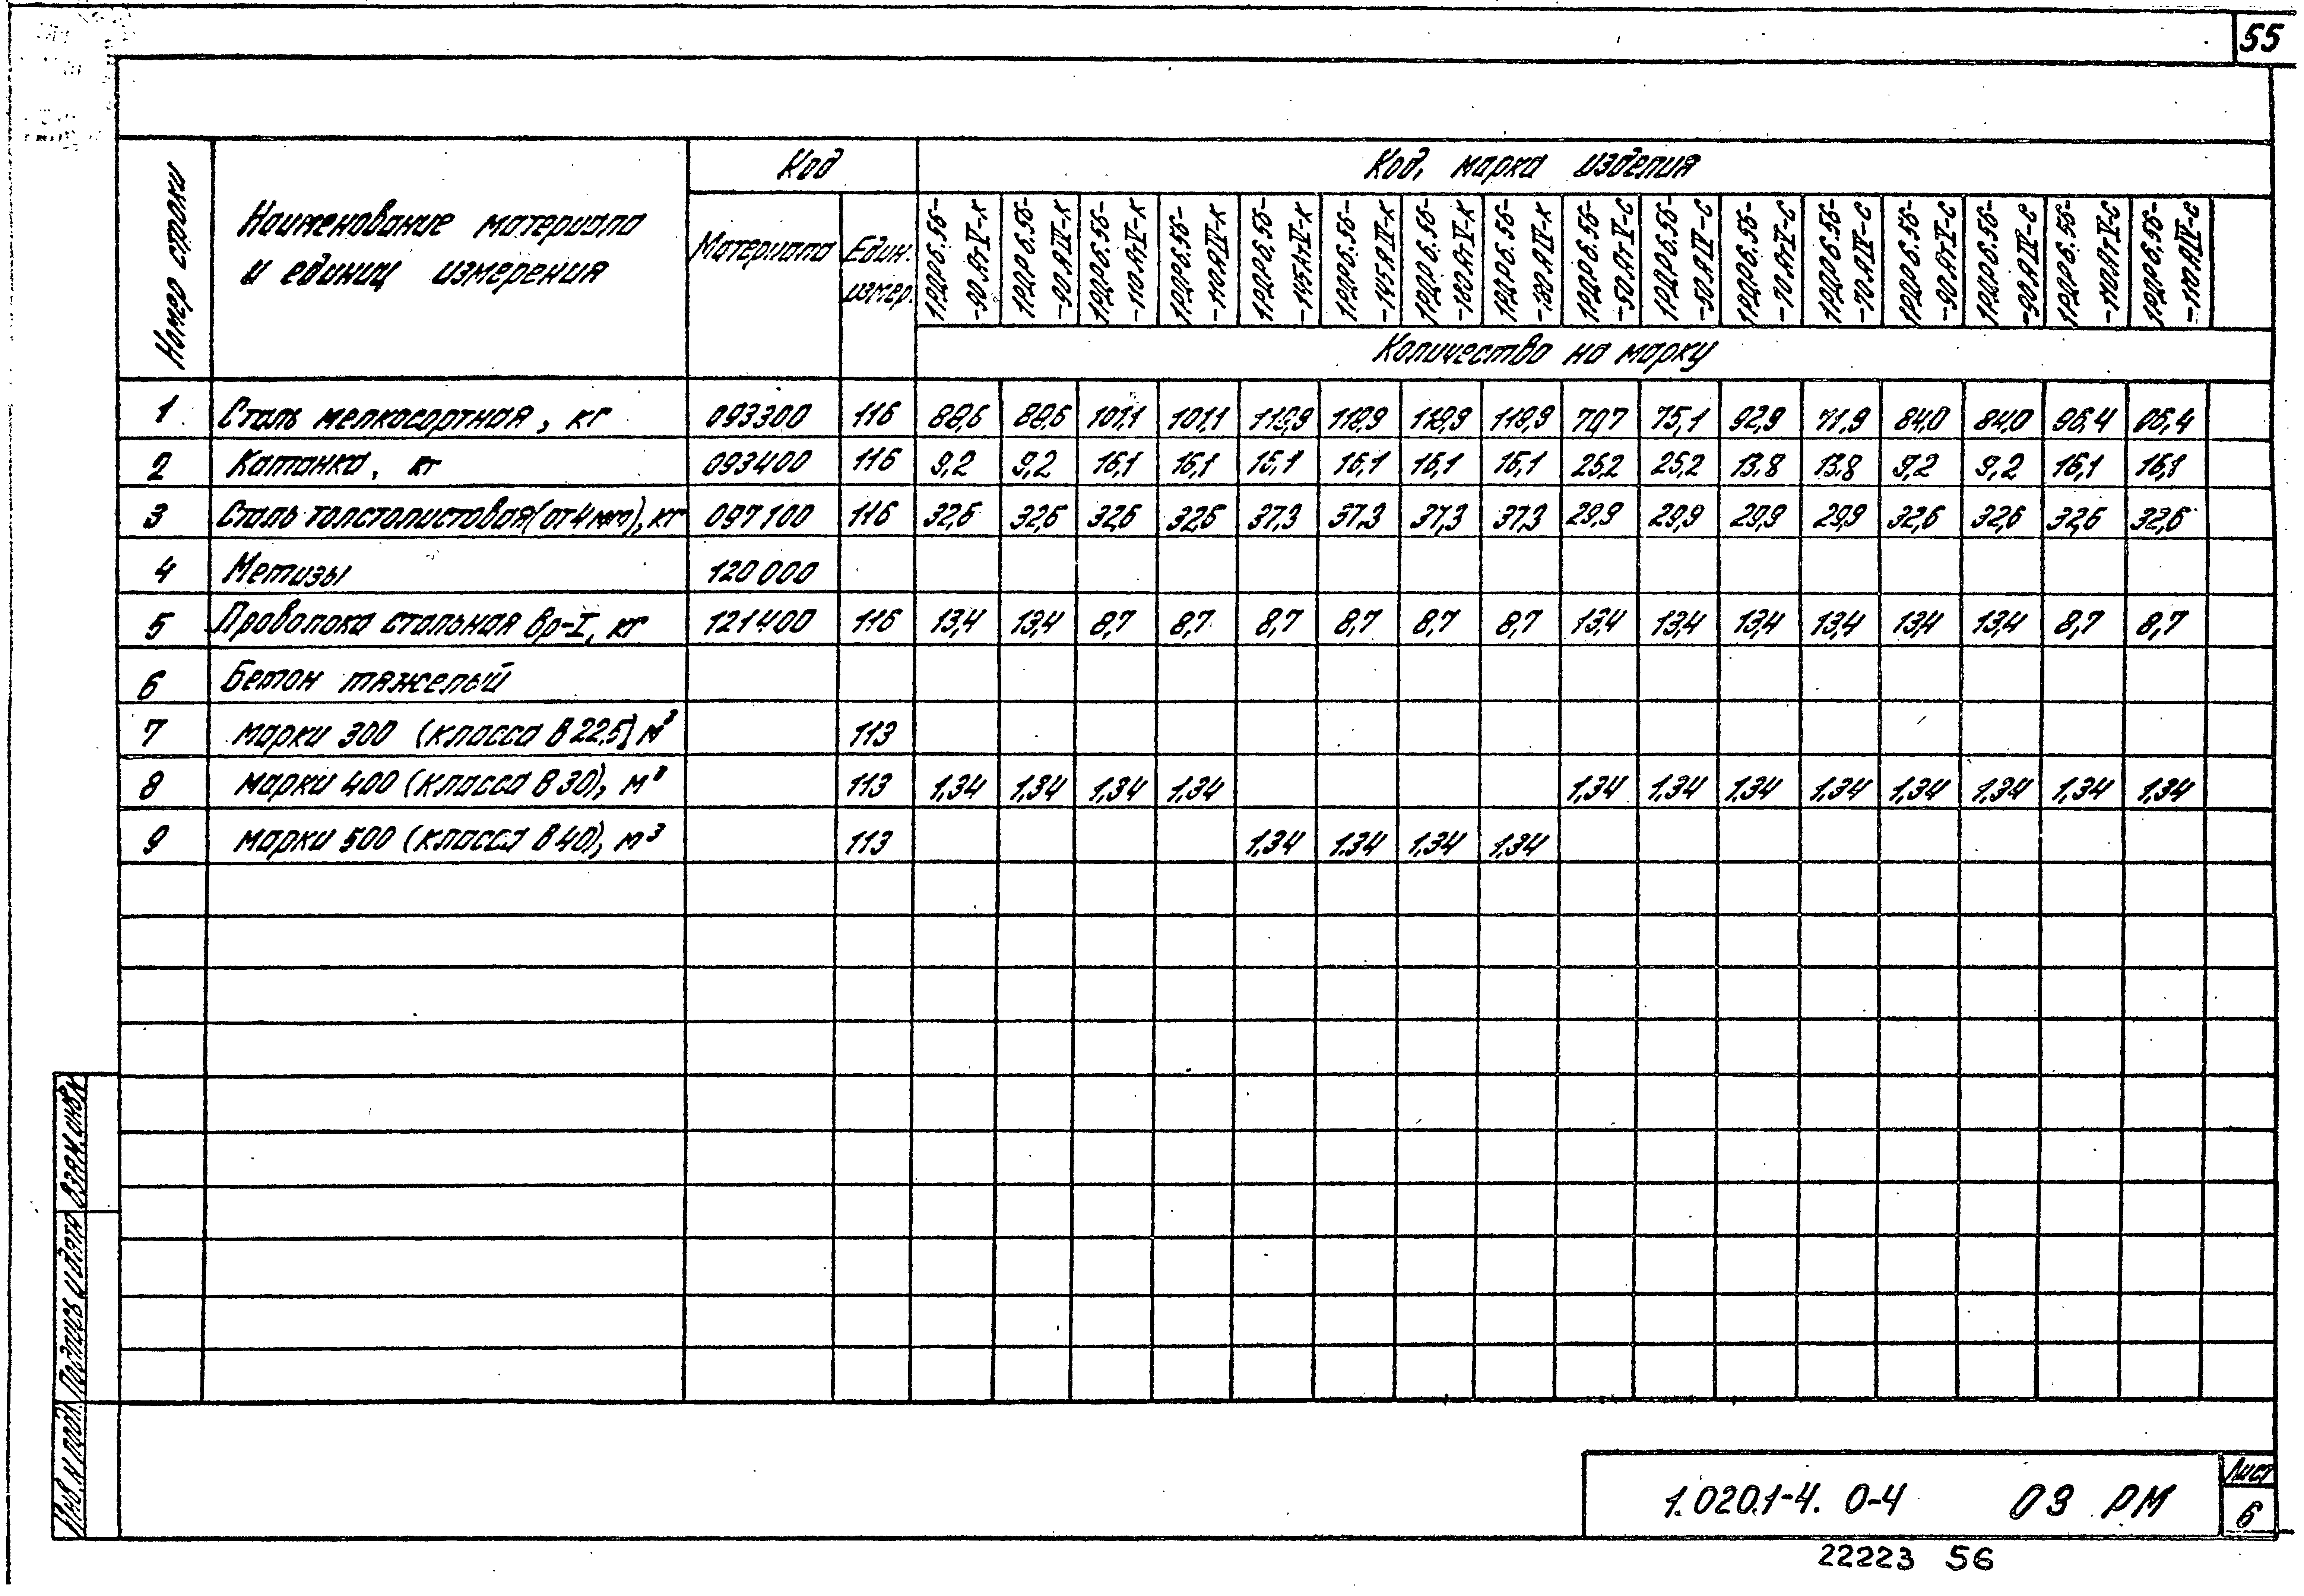 55
Номер строки
Наименование материала
и единиц измерения
Код
Материала
Един.
измер.
Код, марка изделия
1РДР6.56-
-90АтV-К
1РДР6.56-
-90АIV-К
1РДР6.56-
-110АтV-К
1РДР6.56-
-110АIV-К
1РДР6.56-
-145АтV-К
1РДР6.56-
-145АIV-К
1РДР6.56-
-180АтV-К
1РДР6.56-
-180АIV-К
1РДР6.56-
-50АтV-С
1РДР6.56-
-50АIV-С
1РДР6.56-
-70АтV-С
1РДР6.56-
-70АIV-С
1РДР6.56-
-90АтV-С
1РДР6.56-
-90АIV-С
1РДР6.56-
-110АтV-С
1РДР6.56-
-110АIV-С
Количество на марку
1 Сталь мелкосортная, кг 093300 116 88,6 88,6 101,1 101,1 118,9 118,9 118,9 118,9 70,7 75,1 92,9 71,9 84,0 84,0 96,4 96,4
2 Катанка, кг 093400 116 9,2 9,2 16,1 16,1 16,1 16,1 16,1 16,1 25,2 25,2 13,8 13,8 9,2 9,2 16,1 16,1
3 Сталь толстолистовая (от 4 мм), кг 097100 116 32,6 32,6 32,6 32,6 37,3 37,3 37,3 37,3 29,9 29,9 29,9 29,9 32,6 32,6 32,6 32,6
4 Метизы 120000
5 Проволока стальная Вр-I, кг 121400 116 13,4 13,4 8,7 8,7 8,7 8,7 8,7 8,7 13,4 13,4 13,4 13,4 13,4 13,4 8,7 8,7
6 Бетон тяжелый
7 марки 300 (класса В22,5) м³ 113
8 марки 400 (класса В30), м³ 113 1,34 1,34 1,34 1,34 1,34 1,34 1,34 1,34 1,34 1,34 1,34 1,34
9 марки 500 (класса В40), м³ 113 1,34 1,34 1,34 1,34
Взам. инв. №
Подпись и дата
Инв. № подл.
1.020.1-4. 0-4 03 РМ
Лист
6
22223 56